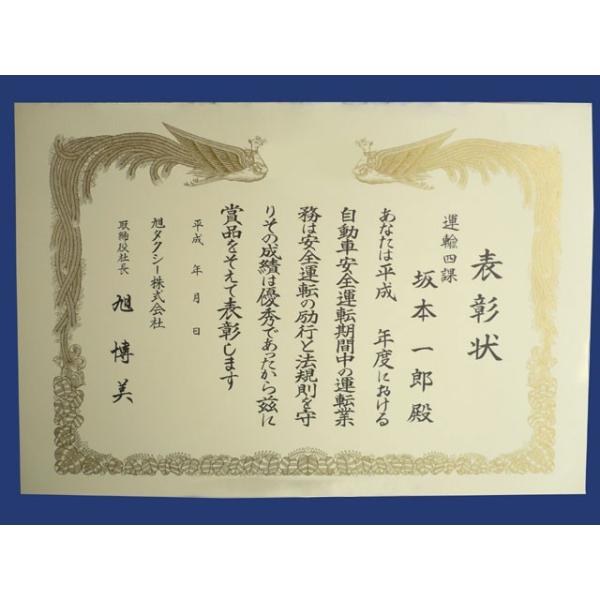 表彰状
運輸四課
坂本一郎殿
あなたは平成　年度における
自動車安全運転期間中の運転業
務は安全運転の励行と法規則を守
りその成績は優秀であったから茲に
賞品をそえて表彰します
平成　年　月　日
旭タクシー株式会社
取締役社長　旭博美